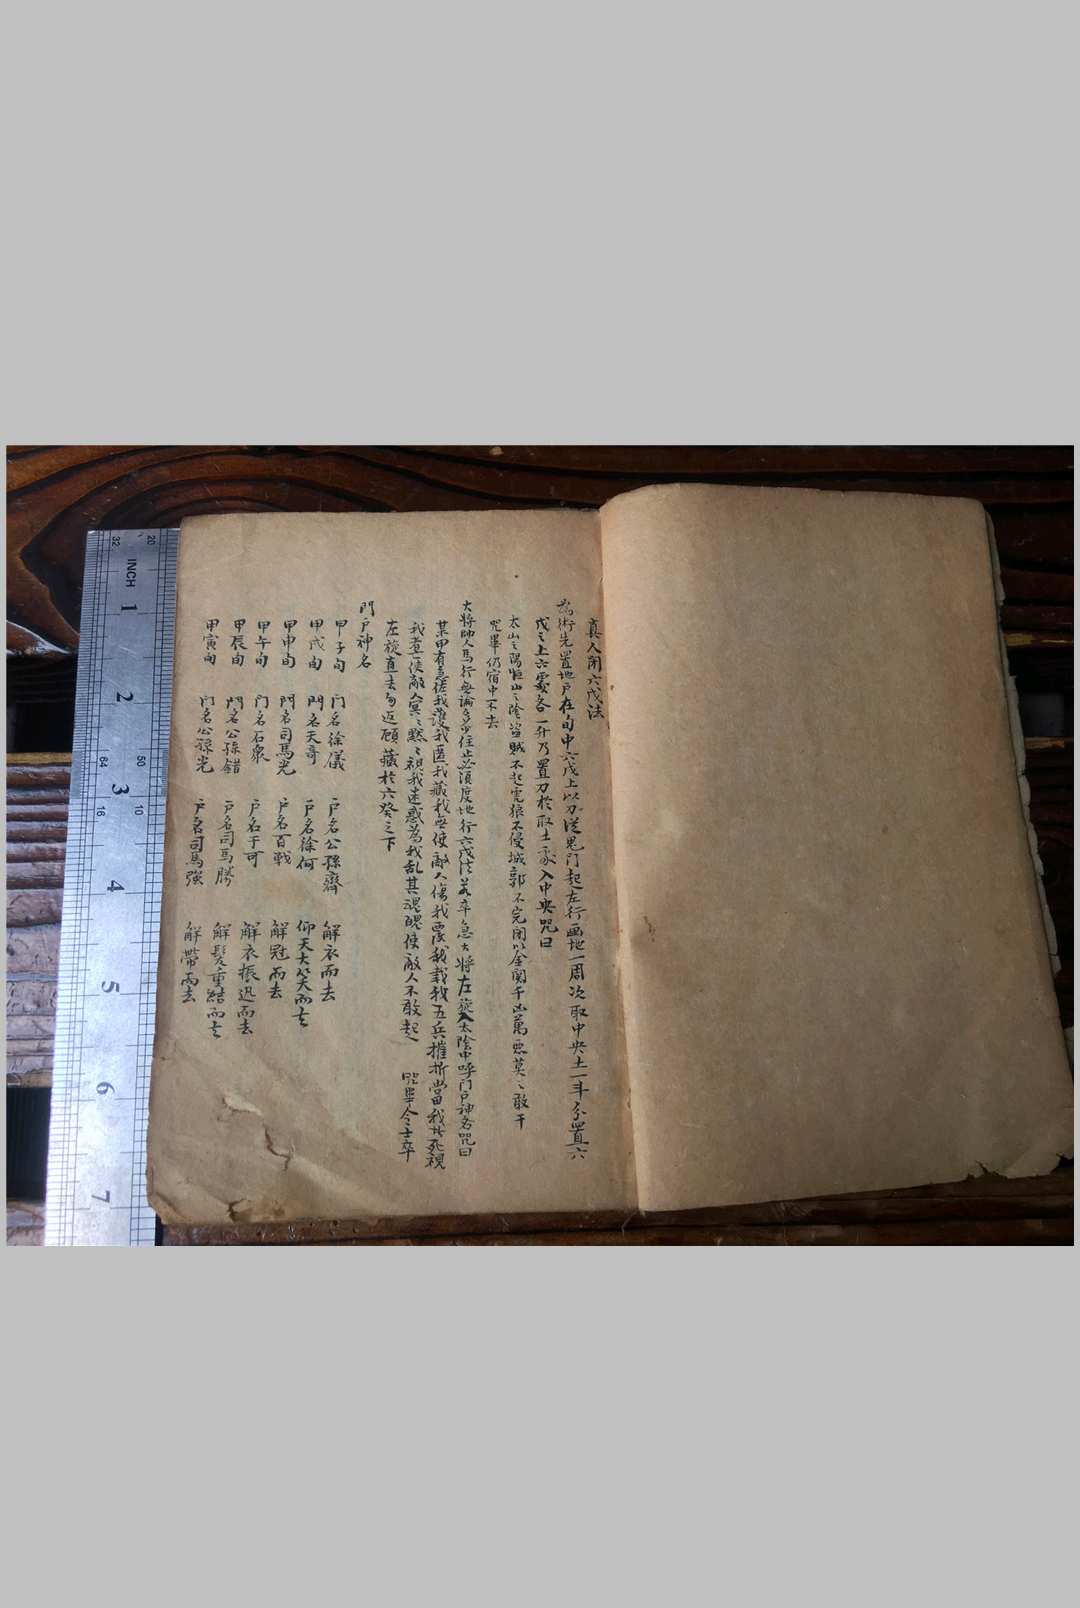 真人閉六戊法
為術先置地戶在旬中六戊上以刀從鬼門起左行畫地一周次取中央土一斗分置六
戊之上六處各一升乃置刀於取土處入中央咒曰
太山之陽恒山之陰盜賊不起虎狼不侵城郭不完閉以金関千凶萬惡莫之敢干
咒畢仍宿中不去
大將帥人馬行無論多少住止必須度地行六戊法若卒急大將左旋入太陰中呼門戶神名咒曰
某甲有急從我護我匿我藏我無使敵人傷我覆我載我五兵摧折當我者死視
我者使敵人冥冥默默視我迷惑為我乱其魂魄使敵人不敢起 咒畢令士卒
左旋直去勿返顧藏於六癸之下
門戶神名
甲子旬 门名徐儀 戶名公孫齊 解衣而去
甲戌旬 門名天哥 戶名徐何 仰天大笑而去
甲申旬 門名司馬光 戶名百戰 解冠而去
甲午旬 门名石衆 戶名于可 解衣振迅而去
甲辰旬 門名公孫錯 戶名司馬勝 解髮重結而去
甲寅旬 门名公孫光 戶名司馬強 解帶而去
INCH
1
2
3
4
5
6
7
32
64
16
20
50
10